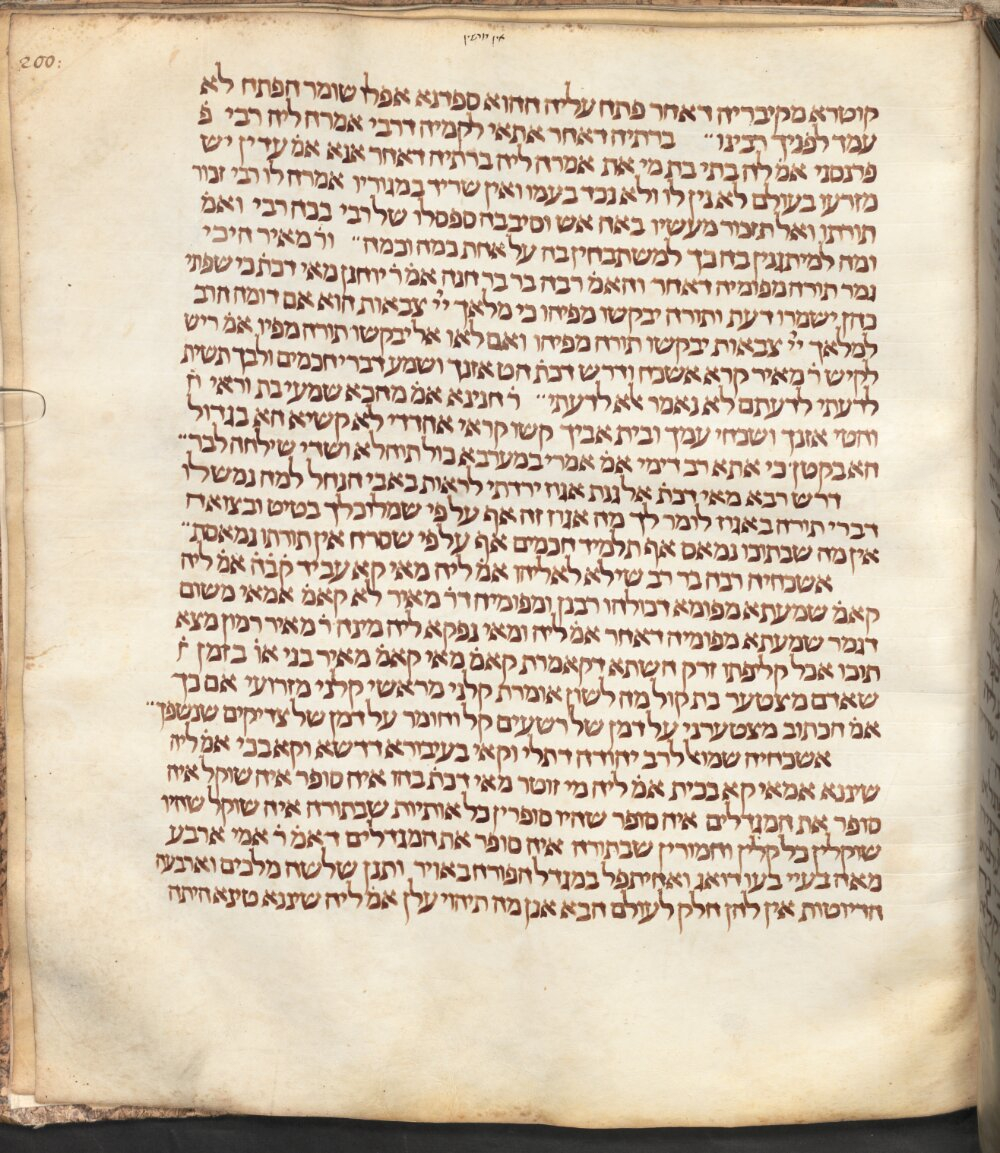 אין דורשין
200:
קוטרא מקיבריה דאחר פתח עליה ההוא ספדנא אפלו שומר הפתח לא
עמד לפניך רבינו ״ ברתיה דאחר אתאי לקמיה דרבי אמרה ליה רבי פ
פרנסני אמ׳ לה בתי בת מי את אמרה ליה ברתיה דאחר אנא אמ׳ עדין יש
מזרעו בעולם לא נין לו ולא נכד בעמו ואין שריד במגוריו אמרה לו רבי זכור
תורתו ואל תזכור מעשיו באה אש וסיכבה ספסלו של רבי בכה רבי ואמ׳
ומה למיתגנין בה כך למשתבחין בה על אחת כמה וכמה״ ור׳ מאיר היכי
גמר תורה מפומיה דאחר והאמ׳ רבה בר בר חנה אמ׳ ר׳ יוחנן מאי דכת׳ כי שפתי
כהן ישמרו דעת ותורה יבקשו מפיהו כי מלאך ייי צבאות הוא אם דומה הרב
למלאך ייי צבאות יבקשו תורה מפיהו ואם לאו אל יבקשו תורה מפיו אמ׳ ריש
לקיש ר׳ מאיר קרא אשכח ודרש דכת׳ הט אזנך ושמע דברי חכמים ולבך תשית
לדעתי לדעתם לא נאמר אלא לדעתי״ ר׳ חנינא אמ׳ מהכא שמעי בת וראי ו׳
והטי אזנך ושכחי עמך ובית אביך קשו קראי אהדדי לא קשיא הא בגדול
הא בקטן כי אתא רב דימי אמ׳ אמרי במערבא כול תוחלא ושדי שילחה לבר״
דרש רבא מאי דכת׳ אל גנת אגוז ירדתי לראות באבי הנחל למה נמשלו
דברי תורה באגוז לומר לך מה אגוז זה אף על פי שמלוכלך בטיט ובצואה
אין מה שבתוכו נמאס אף תלמיד חכמים אף על פי שסרח אין תורתו נמאסת״
אשכחיה רבה בר רב שילא לאליהו אמ׳ ליה מאי קא עביד קב׳ה׳ אמ׳ ליה
קאמ׳ שמעתא מפומא דכולהו רבנן ומפומיה דר׳ מאיר לא קאמ׳ אמאי משום
דגמר שמעתא מפומיה דאחר אמ׳ ליה ומאי נפקא ליה מינה ר׳ מאיר רמון מצא
תוכו אכל קליפתו זרק השתא דקאמרת קאמ׳ מאי קאמ׳ מאיר בני או׳ בזמן ז׳
שאדם מצטער בת קול מה לשון אומרת קלני מראשי קלני מזרועי אם כך
אמ׳ הכתוב מצטערני על דמן של רשעים קל וחומר על דמן של צדיקים שנשפך״
אשכחיה שמואל לרב יהודה דתלי וקאי בעיבורא דדשא וקא בכי אמ׳ ליה
שיננא אמאי קא בכית אמ׳ ליה מי זוטר מאי דכת׳ בהו איה סופר איה שוקל איה
סופר את המגדלים איה סופר שהיו סופרין כל אותיות שבתורה איה שוקל שהיו
שוקלין כל קלין וחמורין שבתורה איה סופר את המגדלים דאמ׳ ר׳ אמי ארבע
מאה בעיי בעו דואג ואחיתפל במגדל הפורח באויר ותנן שלשה מלכים וארבעה
הדיוטות אין להן חלק לעולם הבא אנן מה תיהוי עלן אמ׳ ליה שיננא טינא היתה